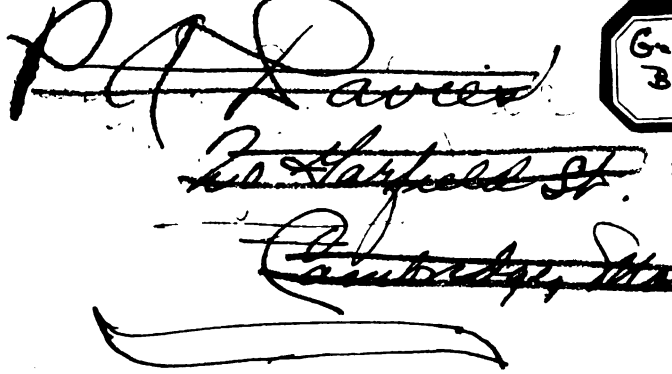 P A Davies
Garfield St.
Cambridge, Ma
B